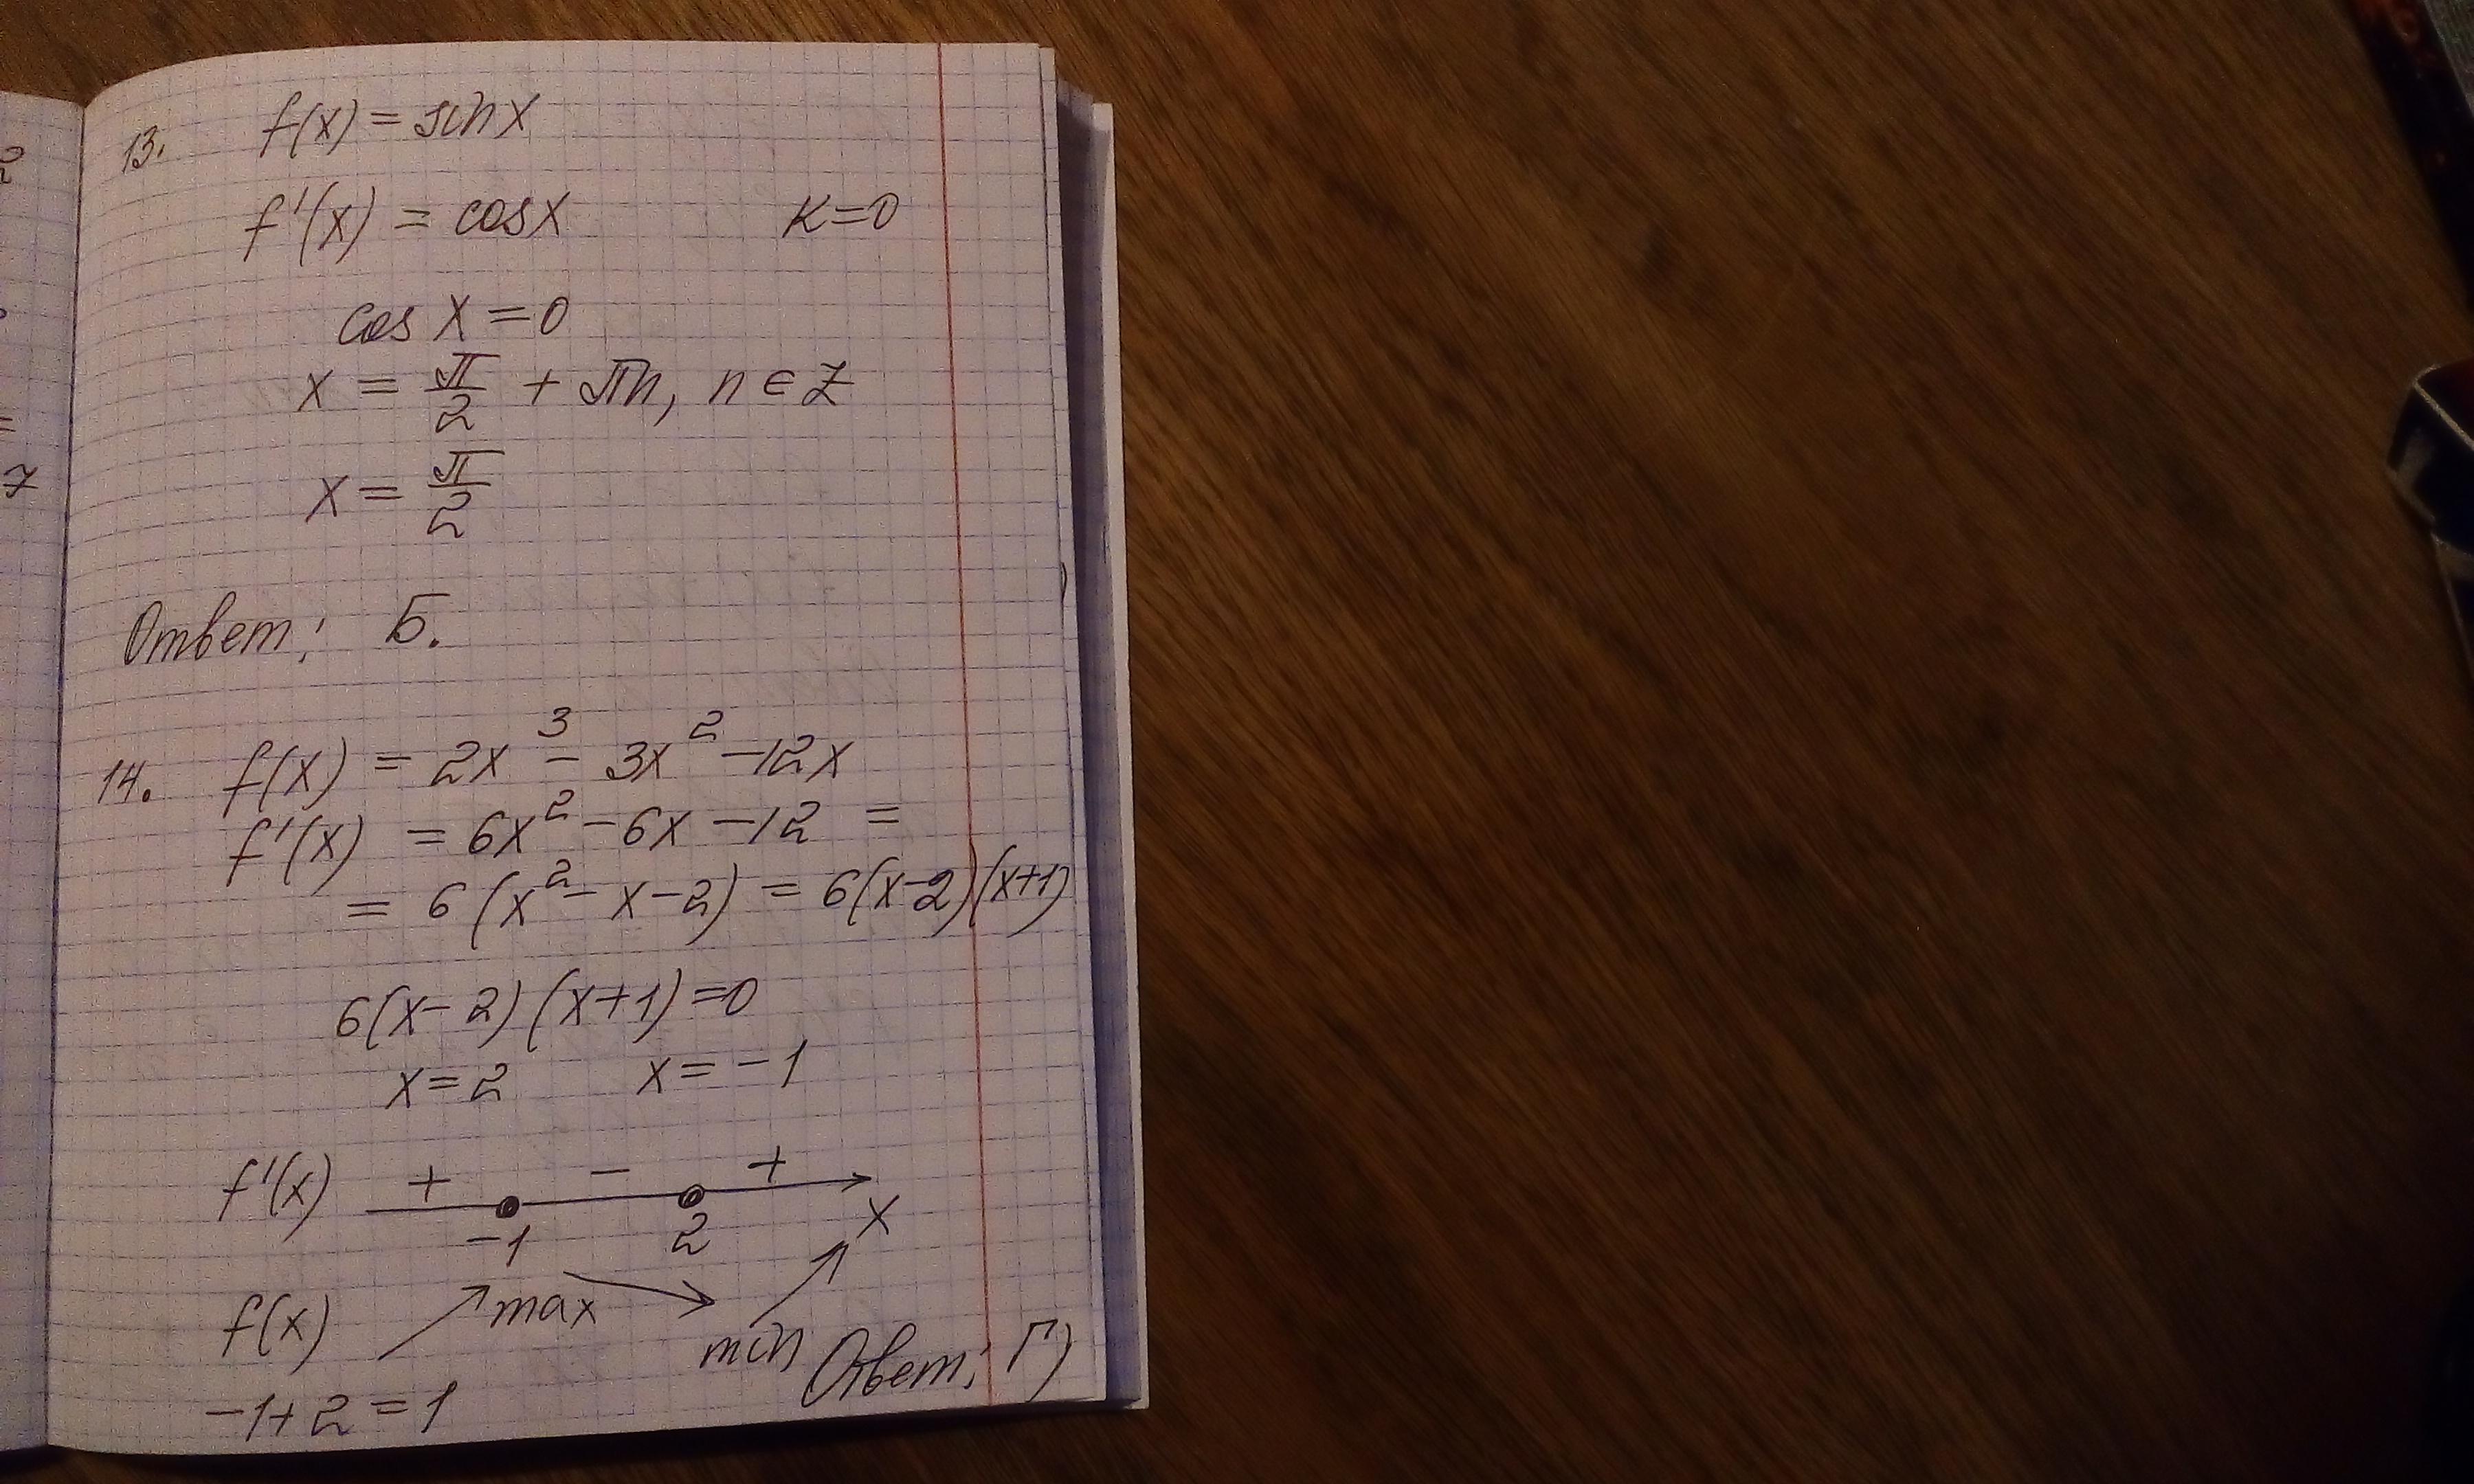 2
=
7
13. f(x) = sin x
f'(x) = cos x K=0
cos x = 0
x = π/2 + πn, n ∈ Z
x = π/2
Ответ: Б.
14. f(x) = 2x³ - 3x² - 12x
f'(x) = 6x² - 6x - 12 =
= 6(x² - x - 2) = 6(x-2)(x+1)
6(x-2)(x+1)=0
x=2 x=-1
f'(x) + - +
-1 2 x
f(x) max min
Ответ: Г)
-1+2=1